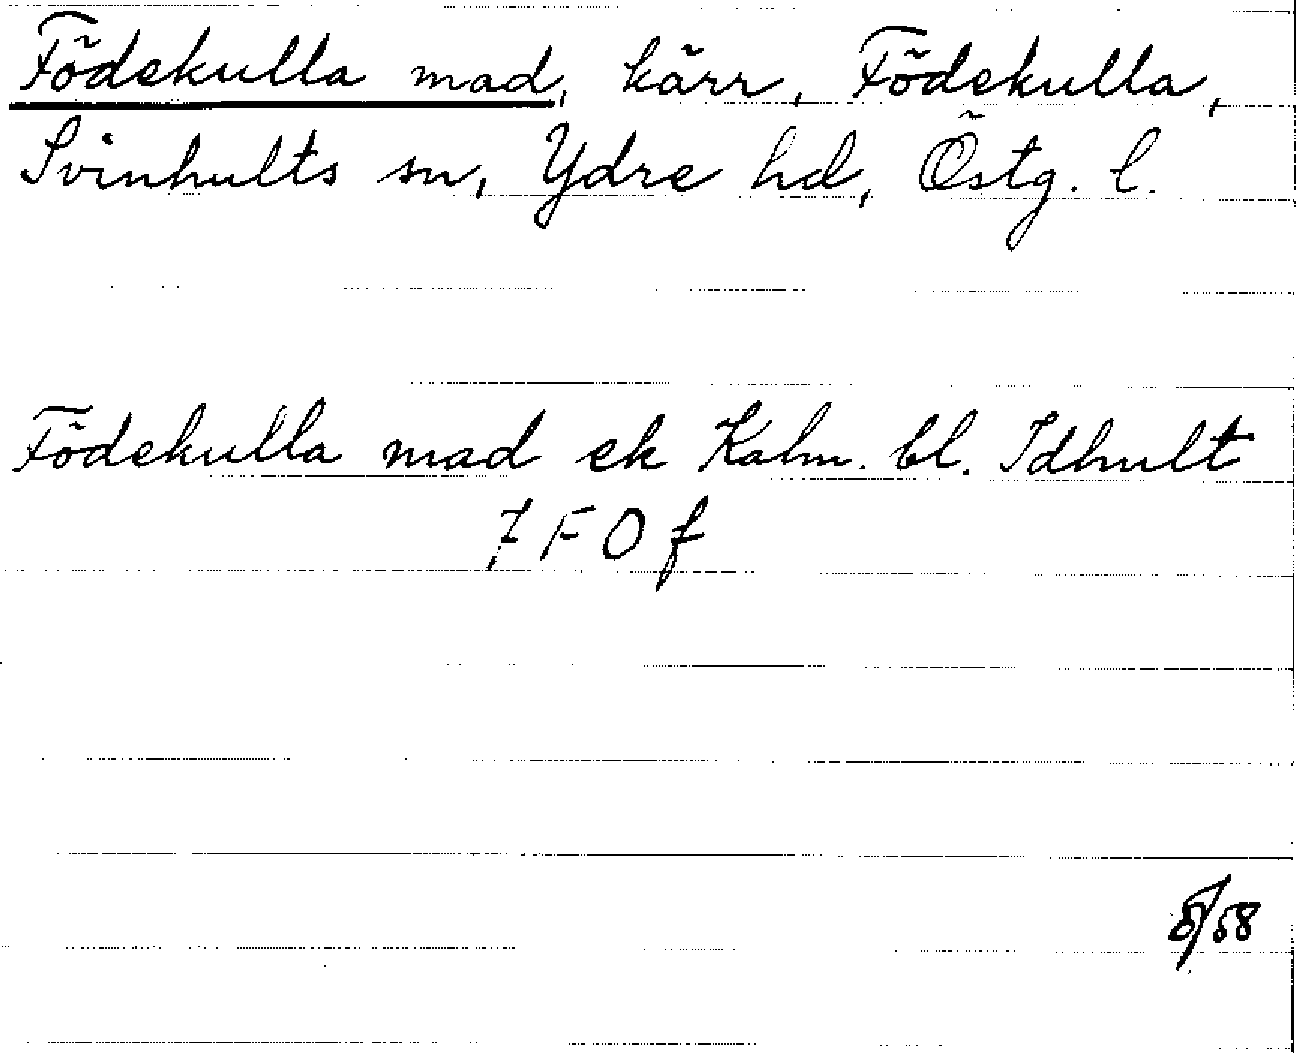 Födekulla mad, kärr, Födekulla,
Svinhults sn, Ydre hd, Östg. l.
Födekulla mad ek Kalm. bl. Idhult
7 F O f
8/58